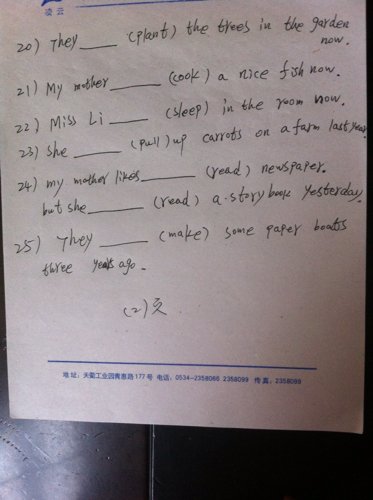 凌云
20) They ____ (plant) the trees in the garden
now.
21) My mother ____ (cook) a nice fish now.
22) Miss Li ____ (sleep) in the room now.
23) She ____ (pull) up carrots on a farm last year.
24) my mother likes ____ (read) newspaper.
but she ____ (read) a storybook yesterday.
25) They ____ (make) some paper boats
three years ago.
(2)
地址：天衢工业园青惠路177号 电话：0534-2358066 2358099 传真：2358099